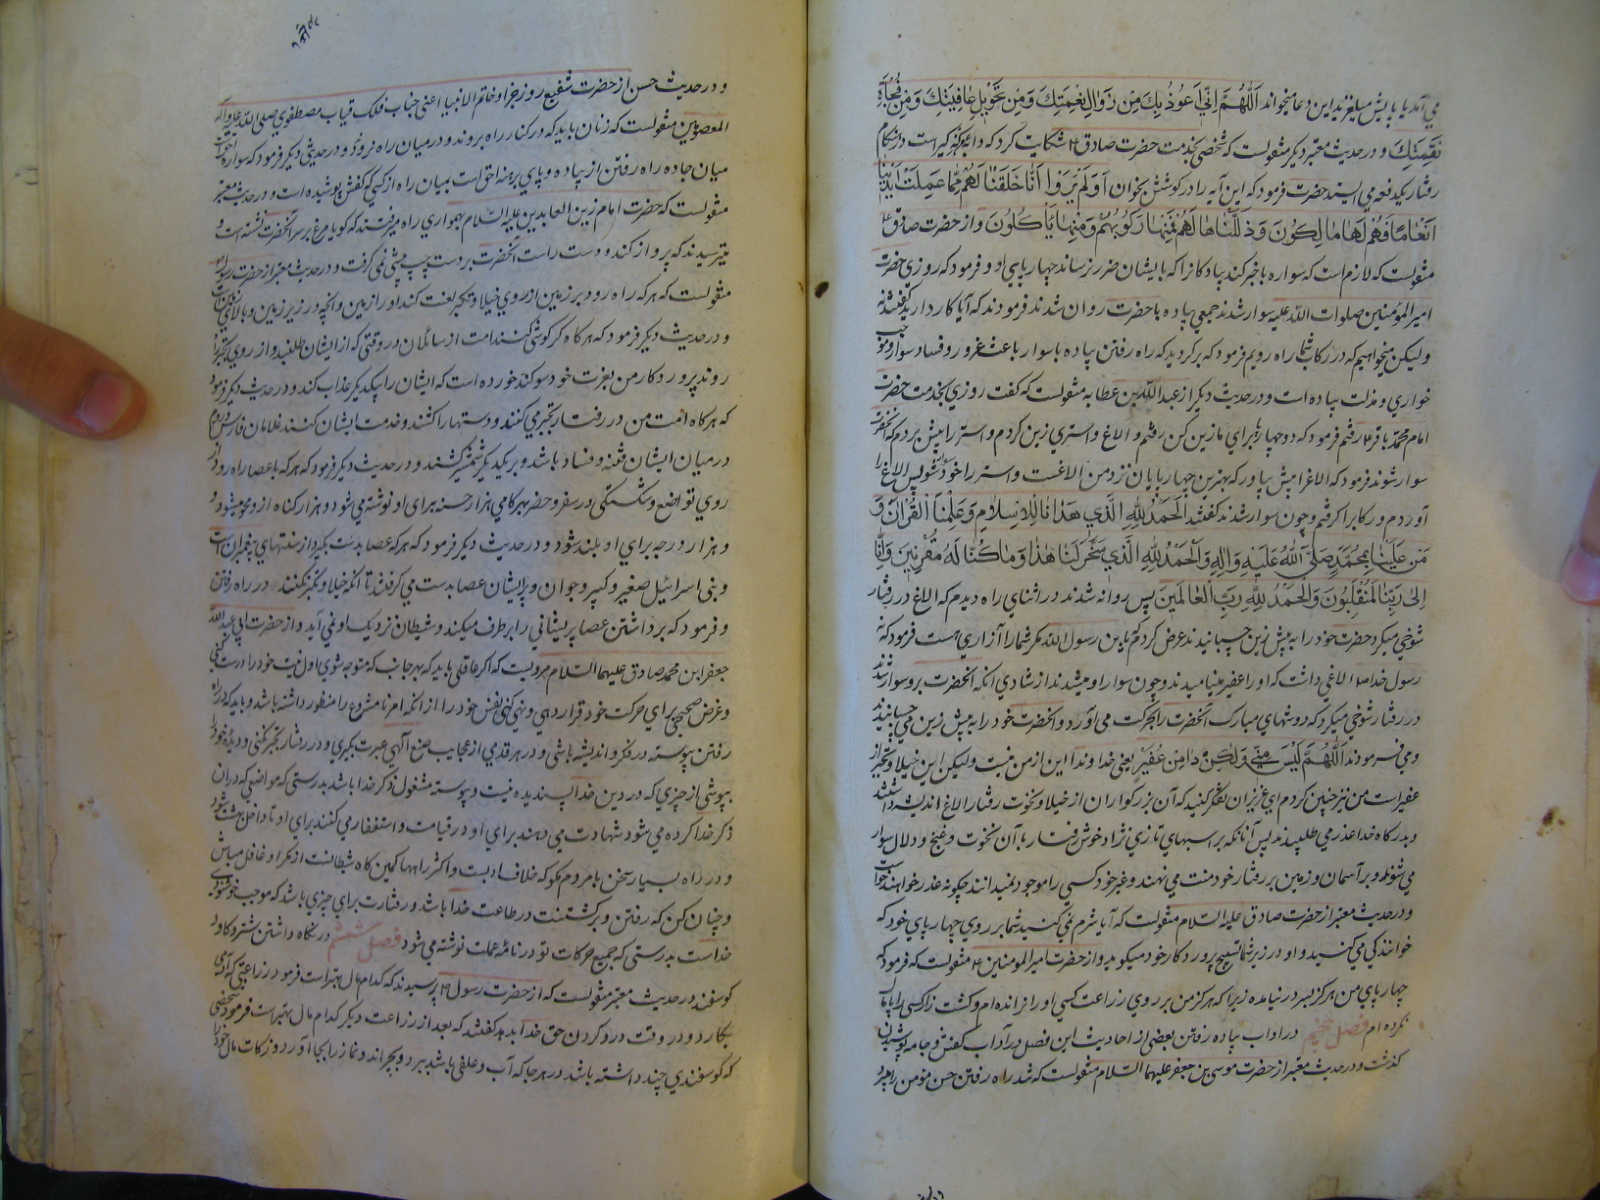 می آمد یا پایش میلغزید این دعا میخواند اَللّهُمَّ اِنّی اَعُوذُ بِکَ مِن زَوالِ نِعمَتِکَ وَمِن تَحویلِ عافِیَتِکَ وَمِن فُجأَةِ
نَقِمَتِکَ و در حدیث معتبر دیکر منقولست که شخصی بخدمت حضرت صادق ع شکایت کرد که دابه
رفتار یکدفعه می ایستد حضرت فرمود که این آیه را در کوشش بخوان اَوَلَم یَرَوا اَنّا خَلَقنا لَهُم مِمّا عَمِلَت اَیدینا
اَنعامًا فَهُم لَها مالِکُونَ وَذَلَّلناها لَهُم فَمِنها رَکُوبُهُم وَمِنها یَأکُلُونَ و از حضرت صادق ع
منقولست که لازم است که سواره با خبر کند پیادکانرا که بایشان ضرر نرساند چهارپای او و فرمود که روزی حضرت
امیر المؤمنین صلوات الله علیه سوار شدند جمعی پیاده با حضرت روان شدند فرمودند که آیا کار دارید کفتند نه
ولیکن میخواهیم که در رکاب شما راه رویم فرمود که برکردید که راه رفتن پیاده با سوار باعث غرور و فساد سوار و موجب
خواری و مذلت پیاده است و در حدیث دیکر از عبد الله بن عطا به منقولست که کفت روزی بخدمت حضرت
امام محمد باقر ع رفتم فرمود که دو چهارپا برای ما زین کن رفتم و الاغ و استری زین کردم و استر را پیش بردم که آنحضرت
سوار شوند فرمود که الاغ را پیش بیاور که بهترین چهارپایان نزد من الاغست و استر را خود سوار شو پس الاغ را
آوردم و رکاب را کرفتم و چون سوار شدند کفتند اَلحَمدُ لِلّهِ الَّذی هَدانا لِلاِسلامِ وَعَلَّمَنَا القُرآنَ وَ
مَنَّ عَلَینا بِمُحَمَّدٍ صَلَّی اللهُ عَلَیهِ وَآلِهِ وَالحَمدُ لِلّهِ الَّذی سَخَّرَ لَنا هذا وَما کُنّا لَهُ مُقرِنینَ وَاِنّا
اِلی رَبِّنا لَمُنقَلِبُونَ وَالحَمدُ لِلّهِ رَبِّ العالَمینَ پس روانه شدند در اثنای راه دیدم که الاغ در رفتار
شوخی میکرد حضرت خود را به پیش زین چسبانیدند عرض کردم که یا بن رسول الله مکر شما را آزاری هست فرمود که
رسول خدا ص الاغی داشت که او را عفیر مینامیدند و چون سوار او میشدند از شادی آنکه آنحضرت برو سوار شدند
در رفتار شوخی میکرد که دوشهای مبارک آنحضرت را بحرکت می آورد و آنحضرت خود را به پیش زین می چسبانیدند
و می فرمودند اَللّهُمَّ لَیسَ مِنّی وَلکِن ذا مِن عُفَیرٍ یعنی خداوندا این از من نیست ولیکن این خیلا و تکبر از
عفیر است من نیز چنین کردم ای عزیزان تفکر کنید که آن بزرکواران از خیلا و نخوت رفتار الاغ اندیشه داشتند
و بدرکاه خدا عذر می طلبیدند پس آنانکه بر اسبهای تازی نژاد خوش رفتار با آن نخوت و غنج و دلال سوار
می شوند و بر آسمان و زمین بر رفتار خود منت می نهند و غیر خود کسی را موجود نمیدانند چکونه عذر خواهند خواست
و در حدیث معتبر از حضرت صادق علیه السلام منقولست که آیا شرم نمی کنید شما بر روی چهارپای خود که
خوانندکی می کنید و او در زیر شما تسبیح پروردکار خود میکوید و از حضرت امیر المومنین ع منقولست که فرمود که
چهارپای من هرکز بسر در نیامده زیرا که هرکز من بر روی زراعت کسی او را نرانده ام و کشت زار کسی را پامال
نکرده ام فصل پنجم در اداب پیاده رفتن بعضی از احادیث این فصل در آداب کفش و جامه پوشیدن
کذشت و در حدیث معتبر از حضرت موسی بن جعفر علیهما السلام منقولست که شد راه رفتن حسن مؤمن را میبرد
و در حدیث حسن از حضرت شفیع روز جزا و خاتم الانبیا اعنی جناب فلک قباب مصطفوی صلی الله علیه وآله
المعصومین منقولست که زنان باید که در کنار راه بروند و در میان راه نروند و در حدیثی دیکر فرمود که سواره
میان جاده راه رفتن از پیاده و پای برهنه احق است بمیان راه از کسی که کفش پوشیده است و در حدیث معتبر
منقولست که حضرت امام زین العابدین علیه السلام بهمواری راه میرفتند که کویا مرغ بر سر آنحضرت نشسته است و
میترسیدند که پرواز کند و دست راست آنحضرت بر دست چپ پیشی نمی کرفت و در حدیث معتبر از حضرت رسول ص
منقولست که هرکه راه رود بر زمین از روی خیلا و تکبر لعنت کند او را زمین و آنچه در زیر زمین و بالای زمین است
و در حدیث دیکر فرمود که هرکاه کر کوشی کنند امت از سائلان در وقتی که از ایشان طلبند و از روی تکبر راه
روند پروردکار من بعزت خود سوکند خورده است که ایشان را بیکدیکر عذاب کند و در حدیث دیکر فرمود
که هرکاه امت من در رفتار تکبر می کنند و دستها را کشند و خدمت ایشان کنند غلامان فارس و روم
در میان ایشان فتنه و فساد باشد و بر یکدیکر شمشیر کشند و در حدیث دیکر فرمود که هرکه با عصا راه رود از
روی تواضع و شکستکی در سفر و حضر بهر کامی هزار حسنه برای او نوشته می شود و هزار کناه از و محو میشود و
و هزار درجه برای او بلند شود و در حدیث دیکر فرمود که هرکه عصا بدست بکیرد از سنتهای پیغمبران است
و بنی اسرائیل صغیر و کبیر و جوان و پیر ایشان عصا بدست می کرفتند تا آنکه خیلا و تکبر نکنند در راه رفتن
و فرمود که برداشتن عصا پریشانی را برطرف میکند و شیطان نزدیک او نمی آید و از حضرت ابی عبد الله
جعفر ابن محمد صادق علیهما السلام مرویست که اکر عاقلی باید که بهر جانب که متوجه شوی اول نیت خود را درست کنی
و غرض صحیحی برای حرکت خود قرار دهی و نهی کنی نفس خود را از آنکه امر نامشروع را منظور داشته باشد و باید که در راه
رفتن پیوسته در فکر و اندیشه باشی و در هر قدمی از عجایب صنع آلهی عبرت بکیری و در رفتار تکبر نکنی و دیده خود را
بپوشی از چیزی که در دین خدا پسندیده نیست و پیوسته مشغول ذکر خدا باشد بدرستی که مواضعی که در ان
ذکر خدا کرده می شود شهادت می دهند برای او در قیامت و استغفار می کنند برای او تا داخل بهشت شود
و در راه بسیار سخن با مردم مکو که خلاف ادبست و اکثر راهها کمین کاه شیطانست از مکر او غافل مباش
و چنان کن که رفتن و برکشتنت در طاعت خدا باشد و رفتارت برای چیزی باشد که موجب خوشنودی
خداست بدرستی که جمیع حرکات تو در نامه عملت نوشته می شود فصل ششم در نکاه داشتن شتر و کاو و
کوسفند در حدیث معتبر منقولست که از حضرت رسول ص پرسیدند که کدام مال بهتر است فرمود زراعتی که آدمی
بکارد و در وقت درو کردن حق خدا بدهد کفتند که بعد از زراعت دیکر کدام مال بهتر است فرمود شخصی
که کوسفندی چند داشته باشد در هر جا که آب و علفی باشد ببرد و بچراند و نماز را بجا آورد و زکات مال خود را